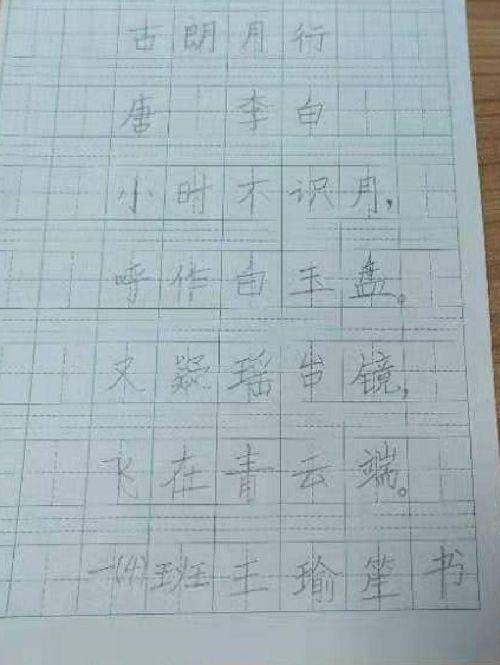 古朗月行
唐 李白
小时不识月,
呼作白玉盘。
又疑瑶台镜,
飞在青云端。
一(4)班王瑜笙书